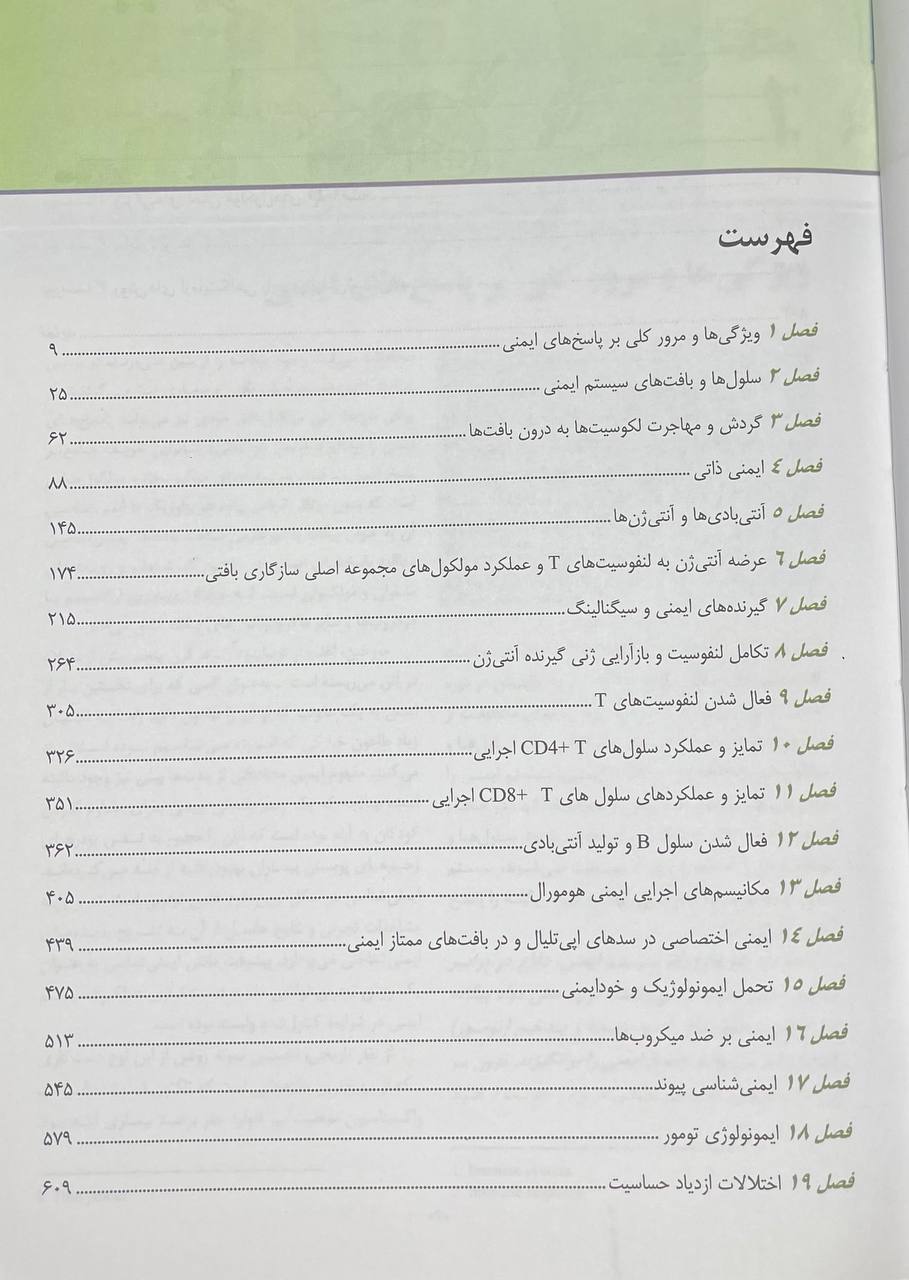 فهرست
فصل ۱ ویژگی‌ها و مرور کلی بر پاسخ‌های ایمنی ........ ۹
فصل ۲ سلول‌ها و بافت‌های سیستم ایمنی ........ ۲۵
فصل ۳ گردش و مهاجرت لکوسیت‌ها به درون بافت‌ها ........ ۶۲
فصل ٤ ایمنی ذاتی ........ ۸۸
فصل ٥ آنتی‌بادی‌ها و آنتی‌ژن‌ها ........ ۱۴۵
فصل ٦ عرضه آنتی‌ژن به لنفوسیت‌های T و عملکرد مولکول‌های مجموعه اصلی سازگاری بافتی ........ ۱۷۴
فصل ۷ گیرنده‌های ایمنی و سیگنالینگ ........ ۲۱۵
فصل ۸ تکامل لنفوسیت و بازآرایی ژنی گیرنده آنتی‌ژن ........ ۲۶۴
فصل ۹ فعال شدن لنفوسیت‌های T ........ ۳۰۵
فصل ۱۰ تمایز و عملکرد سلول‌های CD4+ T اجرایی ........ ۳۲۶
فصل ۱۱ تمایز و عملکردهای سلول های CD8+ T اجرایی ........ ۳۵۱
فصل ۱۲ فعال شدن سلول B و تولید آنتی‌بادی ........ ۳۶۲
فصل ۱۳ مکانیسم‌های اجرایی ایمنی هومورال ........ ۴۰۵
فصل ۱٤ ایمنی اختصاصی در سدهای اپی‌تلیال و در بافت‌های ممتاز ایمنی ........ ۴۳۹
فصل ۱٥ تحمل ایمونولوژیک و خودایمنی ........ ۴۷۵
فصل ۱٦ ایمنی بر ضد میکروب‌ها ........ ۵۱۳
فصل ۱۷ ایمنی‌شناسی پیوند ........ ۵۴۵
فصل ۱۸ ایمونولوژی تومور ........ ۵۷۹
فصل ۱۹ اختلالات ازدیاد حساسیت ........ ۶۰۹